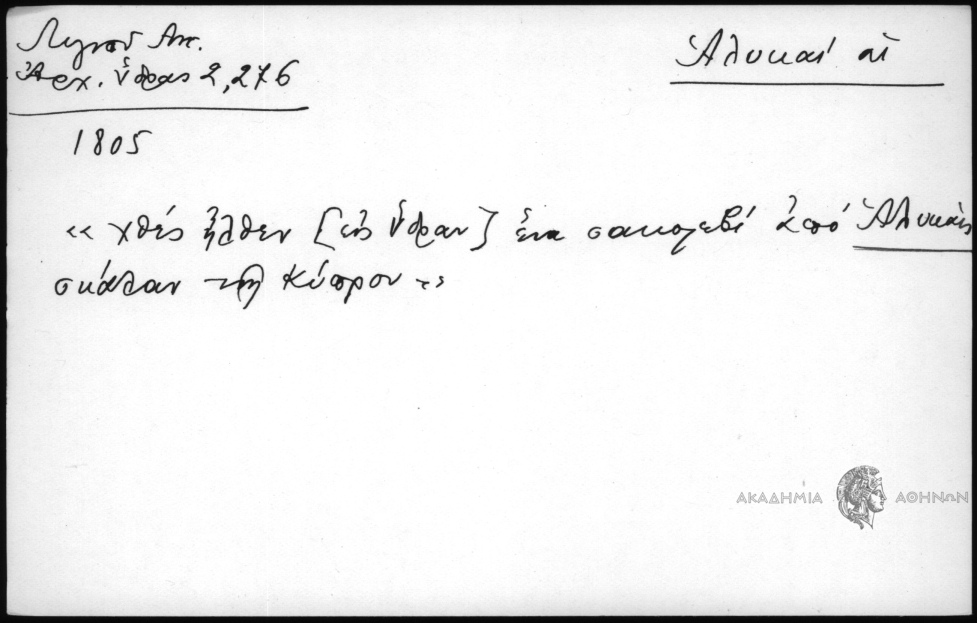 Λιγνοῦ Ἀντ.
Ἀρχ. Ὕδρας 2,276
Ἁλυκαί αἱ
1805
«χθές ἦλθεν [εἰς Ὕδραν] ἕνα σακολεβί ἀπό Ἁλυκάς
σκάλαν τῆς Κύπρου»
ΑΚΑΔΗΜΙΑ ΑΘΗΝΩΝ